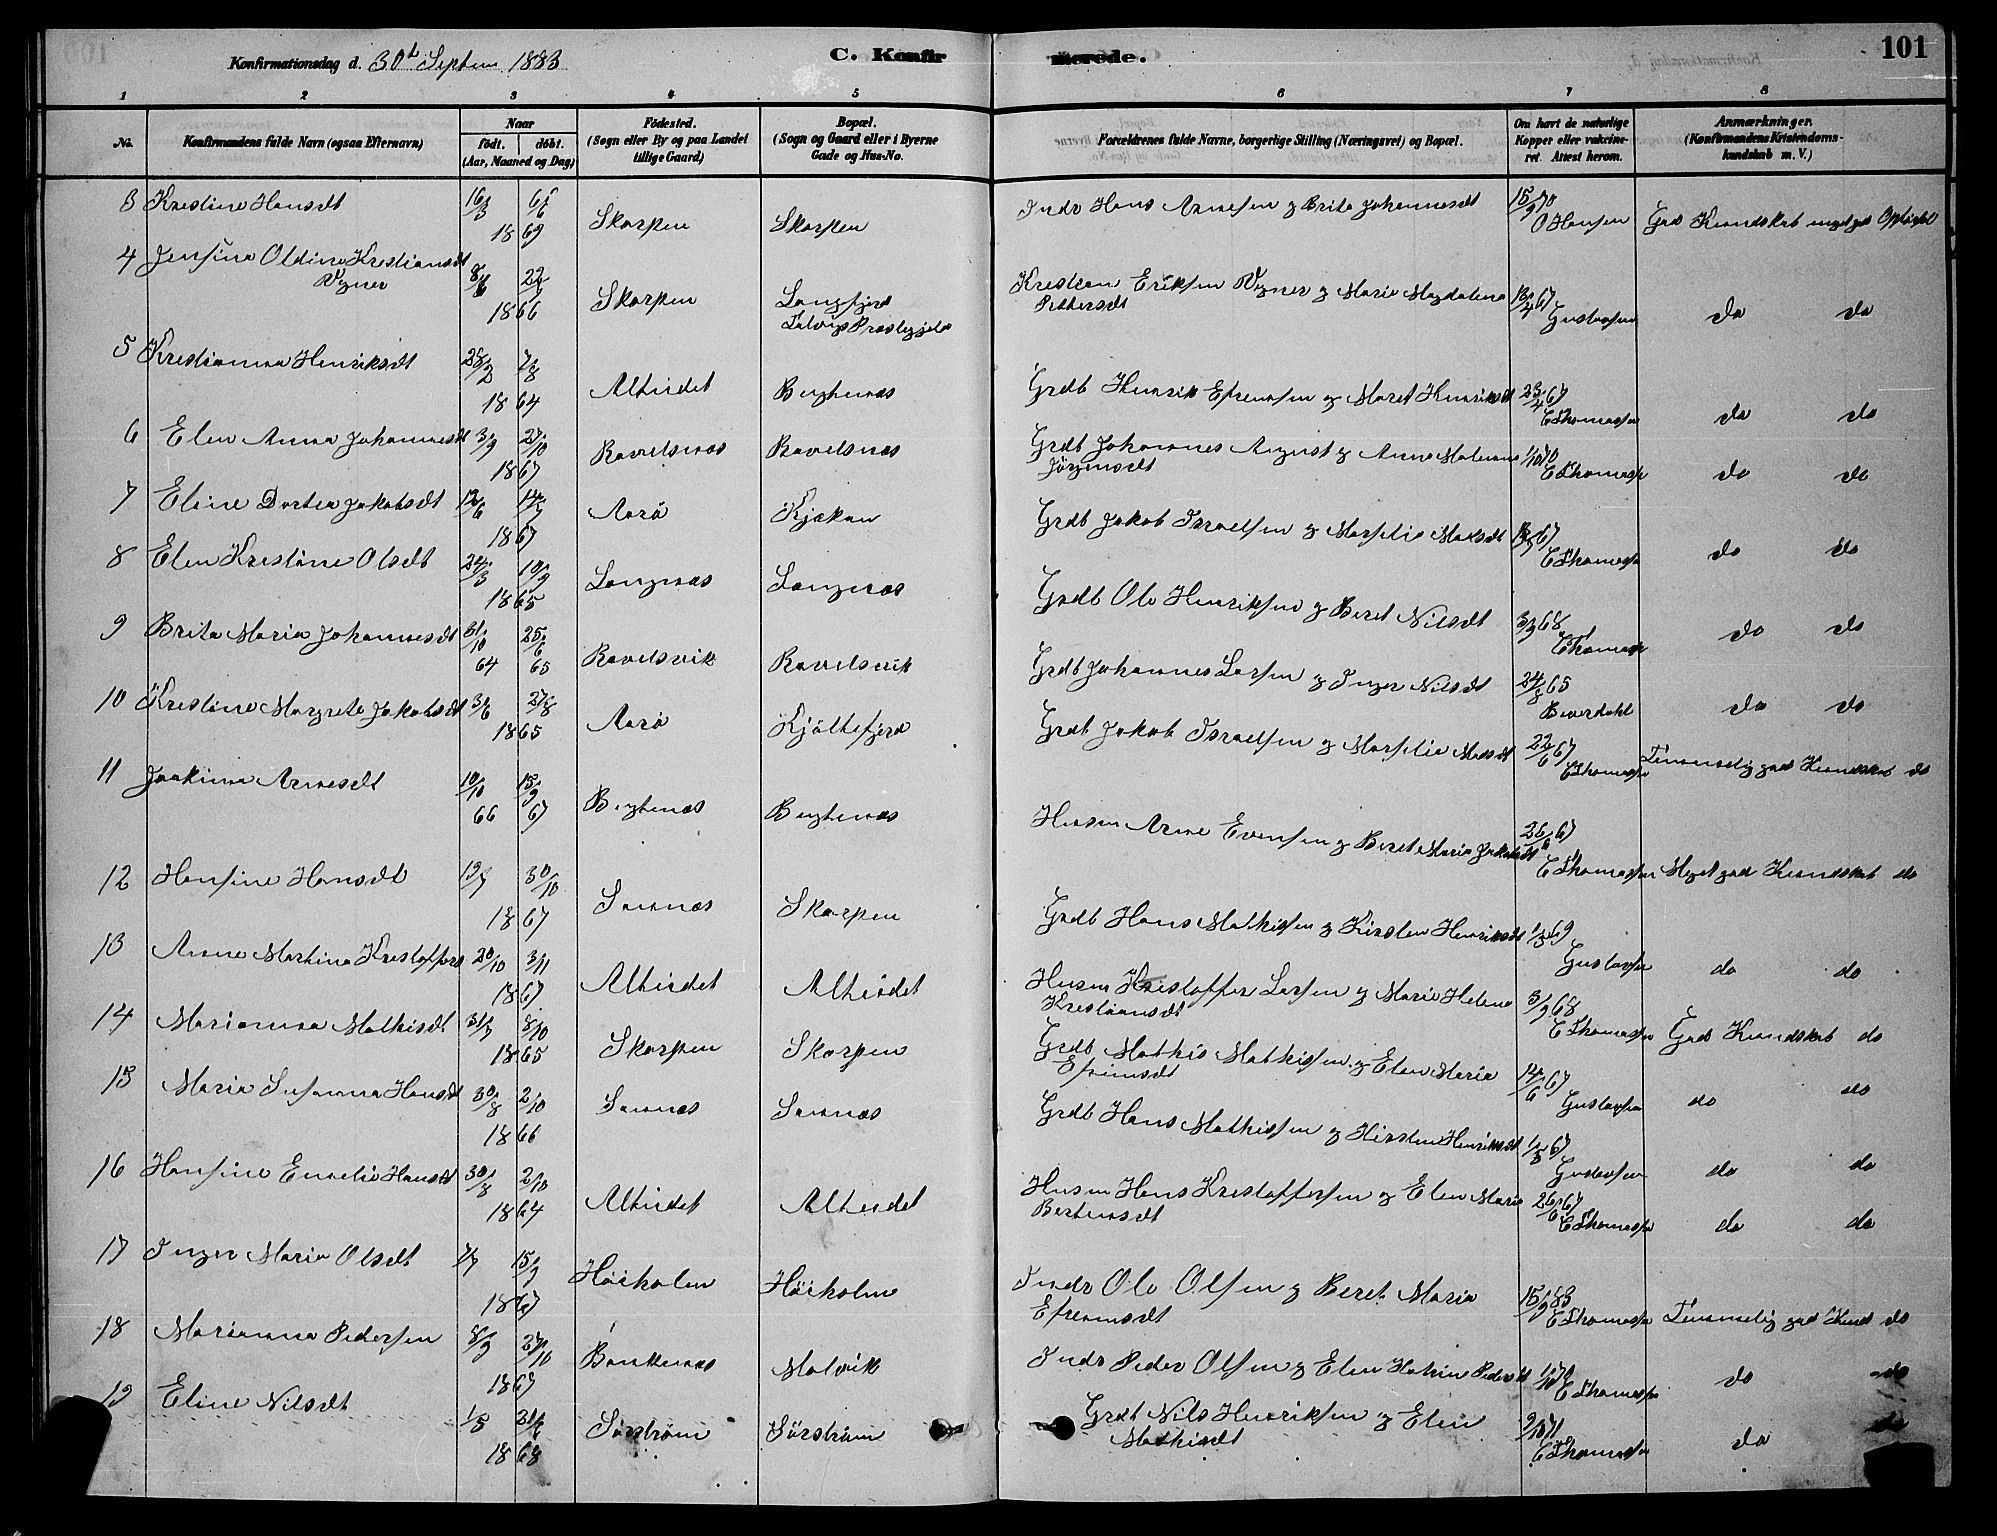 Konfirmationsdag d. 30t Septem 1883
C. Konfirmerede.
101
1 2 3 4 5 6 7 8
No.
Konfirmandens fulde Navn (ogsaa Efternavn)
Naar
födt. döbt.
(Aar, Maaned og Dag)
Födested.
(Sogn eller By og paa Landet
tillige Gaard)
Bopæl.
(Sogn og Gaard eller i Byerne
Gade og Hus-No.
Forældrenes fulde Navne, borgerlige Stilling (Næringsvei) og Bopæl.
Om havt de naturlige
Kopper eller vakcine-
ret. Attest herom.
Anmærkninger.
(Konfirmandens Kristendoms-
kundskab m. V.)
3 Kristine Hansdt 16/3 6/6 1869 Skorpen Skorpen Indr Hans Arnesen og Brita Johannesdt 15/9 70 O Hansen God Kundskab meget god Opförsel
4 Jensine Oldine Kristiansdt
Vegner 1866 Skorpen Langfjord
Talvigs Præstegjeld Kristian Eriksen Vegner og Marie Magdalena
Pettersdt 13/4 67 Gustavsen do do
5 Kristianna Henriksdt 28/2 7/8 1864 Alteidet Bergtenæs Grdb Henrik Efremsen og Maret Henriksdt 23/4 67 E Thomassen do do
6 Elen Anna Johannesdt 3/9 27/10 1867 Ravelsnæs Ravelsnæs Grdb Johannes August og Anne Malene
Jörgensdt 1/10 70 E Thomassen do do
7 Eline Dortea Jakobsdt 12/6 14/7 1867 Aarö Kjækan Grdb Jakob Israelsen og Marselie Madsdt E Thomassen do do
8 Elen Kristine Olsdt 24/3 10/9 1865 Langnæs Langnæs Grdb Ole Henriksen og Beret Nilsdt 3/9 68 E Thomassen do do
9 Brita Maria Johannesdt 31/10 64 25/6 65 Ravelsvik Ravelsvik Grdb Johannes Larsen og Inger Nilsdt 24/8 65 Beverdahl do do
10 Kristine Margrete Jakobsdt 3/6 27/8 1865 Aarö Kjöllefjord Grdb Jakob Israelsen og Marselie Madsdt 22/6 67 E Thomassen Temmelig god Kundskab do
11 Joakima Arnesdt 10/10 66 15/9 67 Bergtenæs Bergtenæs Husm Arne Evensen og Beret Maria Jakobsdt 26/6 67 E Thomassen Meget god Kundskab do
12 Hansine Hansdt 30/10 1867 Sarnæs Skorpen Grdb Hans Mathissen og Kirsten Henriksdt 69 Gustavsen do do
13 Anne Martina Kristoffers 20/10 3/11 1867 Alteidet Alteidet Husm Kristoffer Larsen og Marie Helene
Kristiansdt 3/9 68 E Thomassen God Kundskab do
14 Marianna Mathisdt 31/7 8/10 1865 Skorpen Skorpen Grdb Mathis Mathissen og Elen Maria
Efrimsdt 14/6 67 Gustavsen do do
15 Maria Susanna Hansdt 30/8 2/10 1866 Sarnæs Sarnæs Grdb Hans Mathissen og Kirsten Henriksdt 1/8 67 Gustavsen do do
16 Hansine Enrelie Hansdt 30/8 2/10 1864 Alteidet Alteidet Husm Hans Kristoffersen og Elen Marie
Bertensdt 26/6 67 E Thomassen do do
17 Inger Maria Olsdt 7/7 15/9 1867 Höiholm Höiholm Indr Ole Olsen og Beret Maria
Efraimsdt 15/9 83 E Thomassen Temmelig god Kund do
18 Marianna Pedersen 8/9 27/10 1867 Bankenæs Malvik Indr Peder Olsen og Elen Katrin Pedersdt E Thomassen do do
19 Eline Nilsdt 1868 Sörström Sörström Grdb Nils Henriksen og Elen
Mathisdt 9/10 71 E Thomassen do do